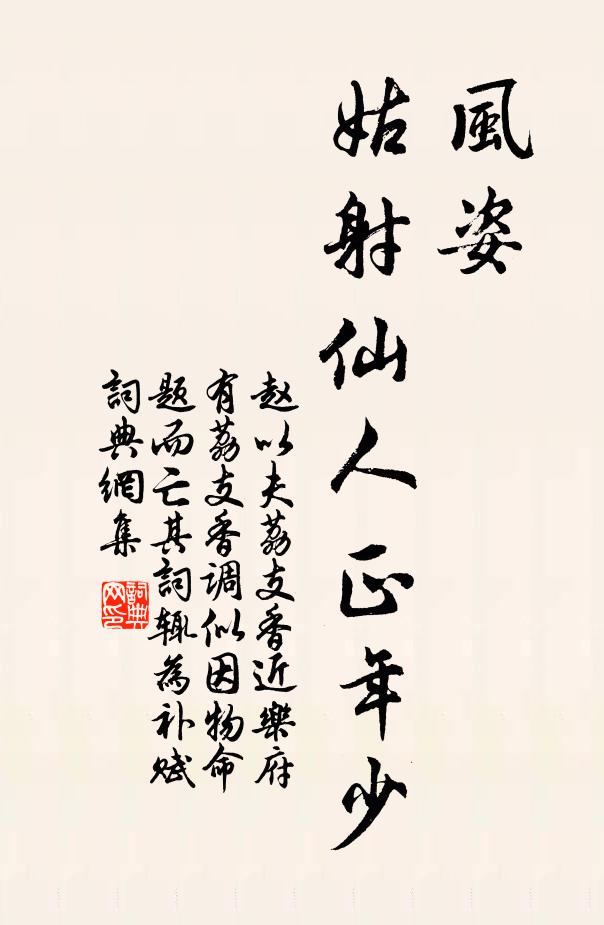 風姿
姑射仙人正年少
赵以夫荔支香近樂府
有荔支香调似因物命
题而亡其詞辄為补赋
詞典網集
詞典
网印